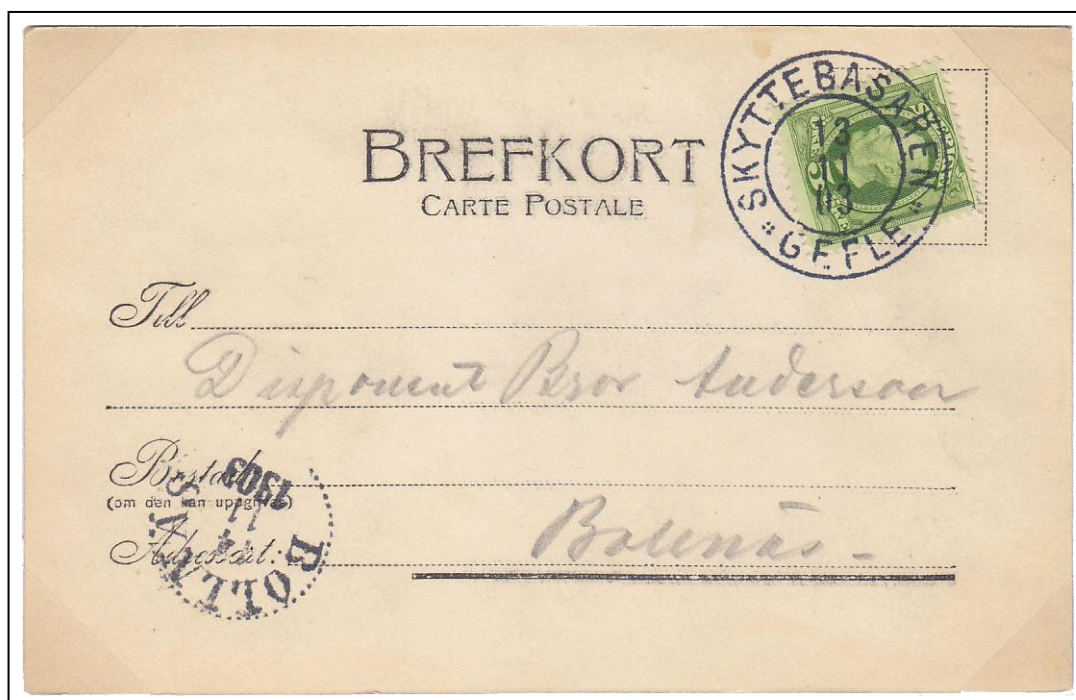 BREFKORT
CARTE POSTALE
SKYTTEBASAREN
13
11
03
GEFLE
SVERIGE
5
Till
Disponent Bror Anderson
Bostad:
(om den kan uppgifvas)
Adressort:
Bollnäs
BOLLNÄS
14
11
1903